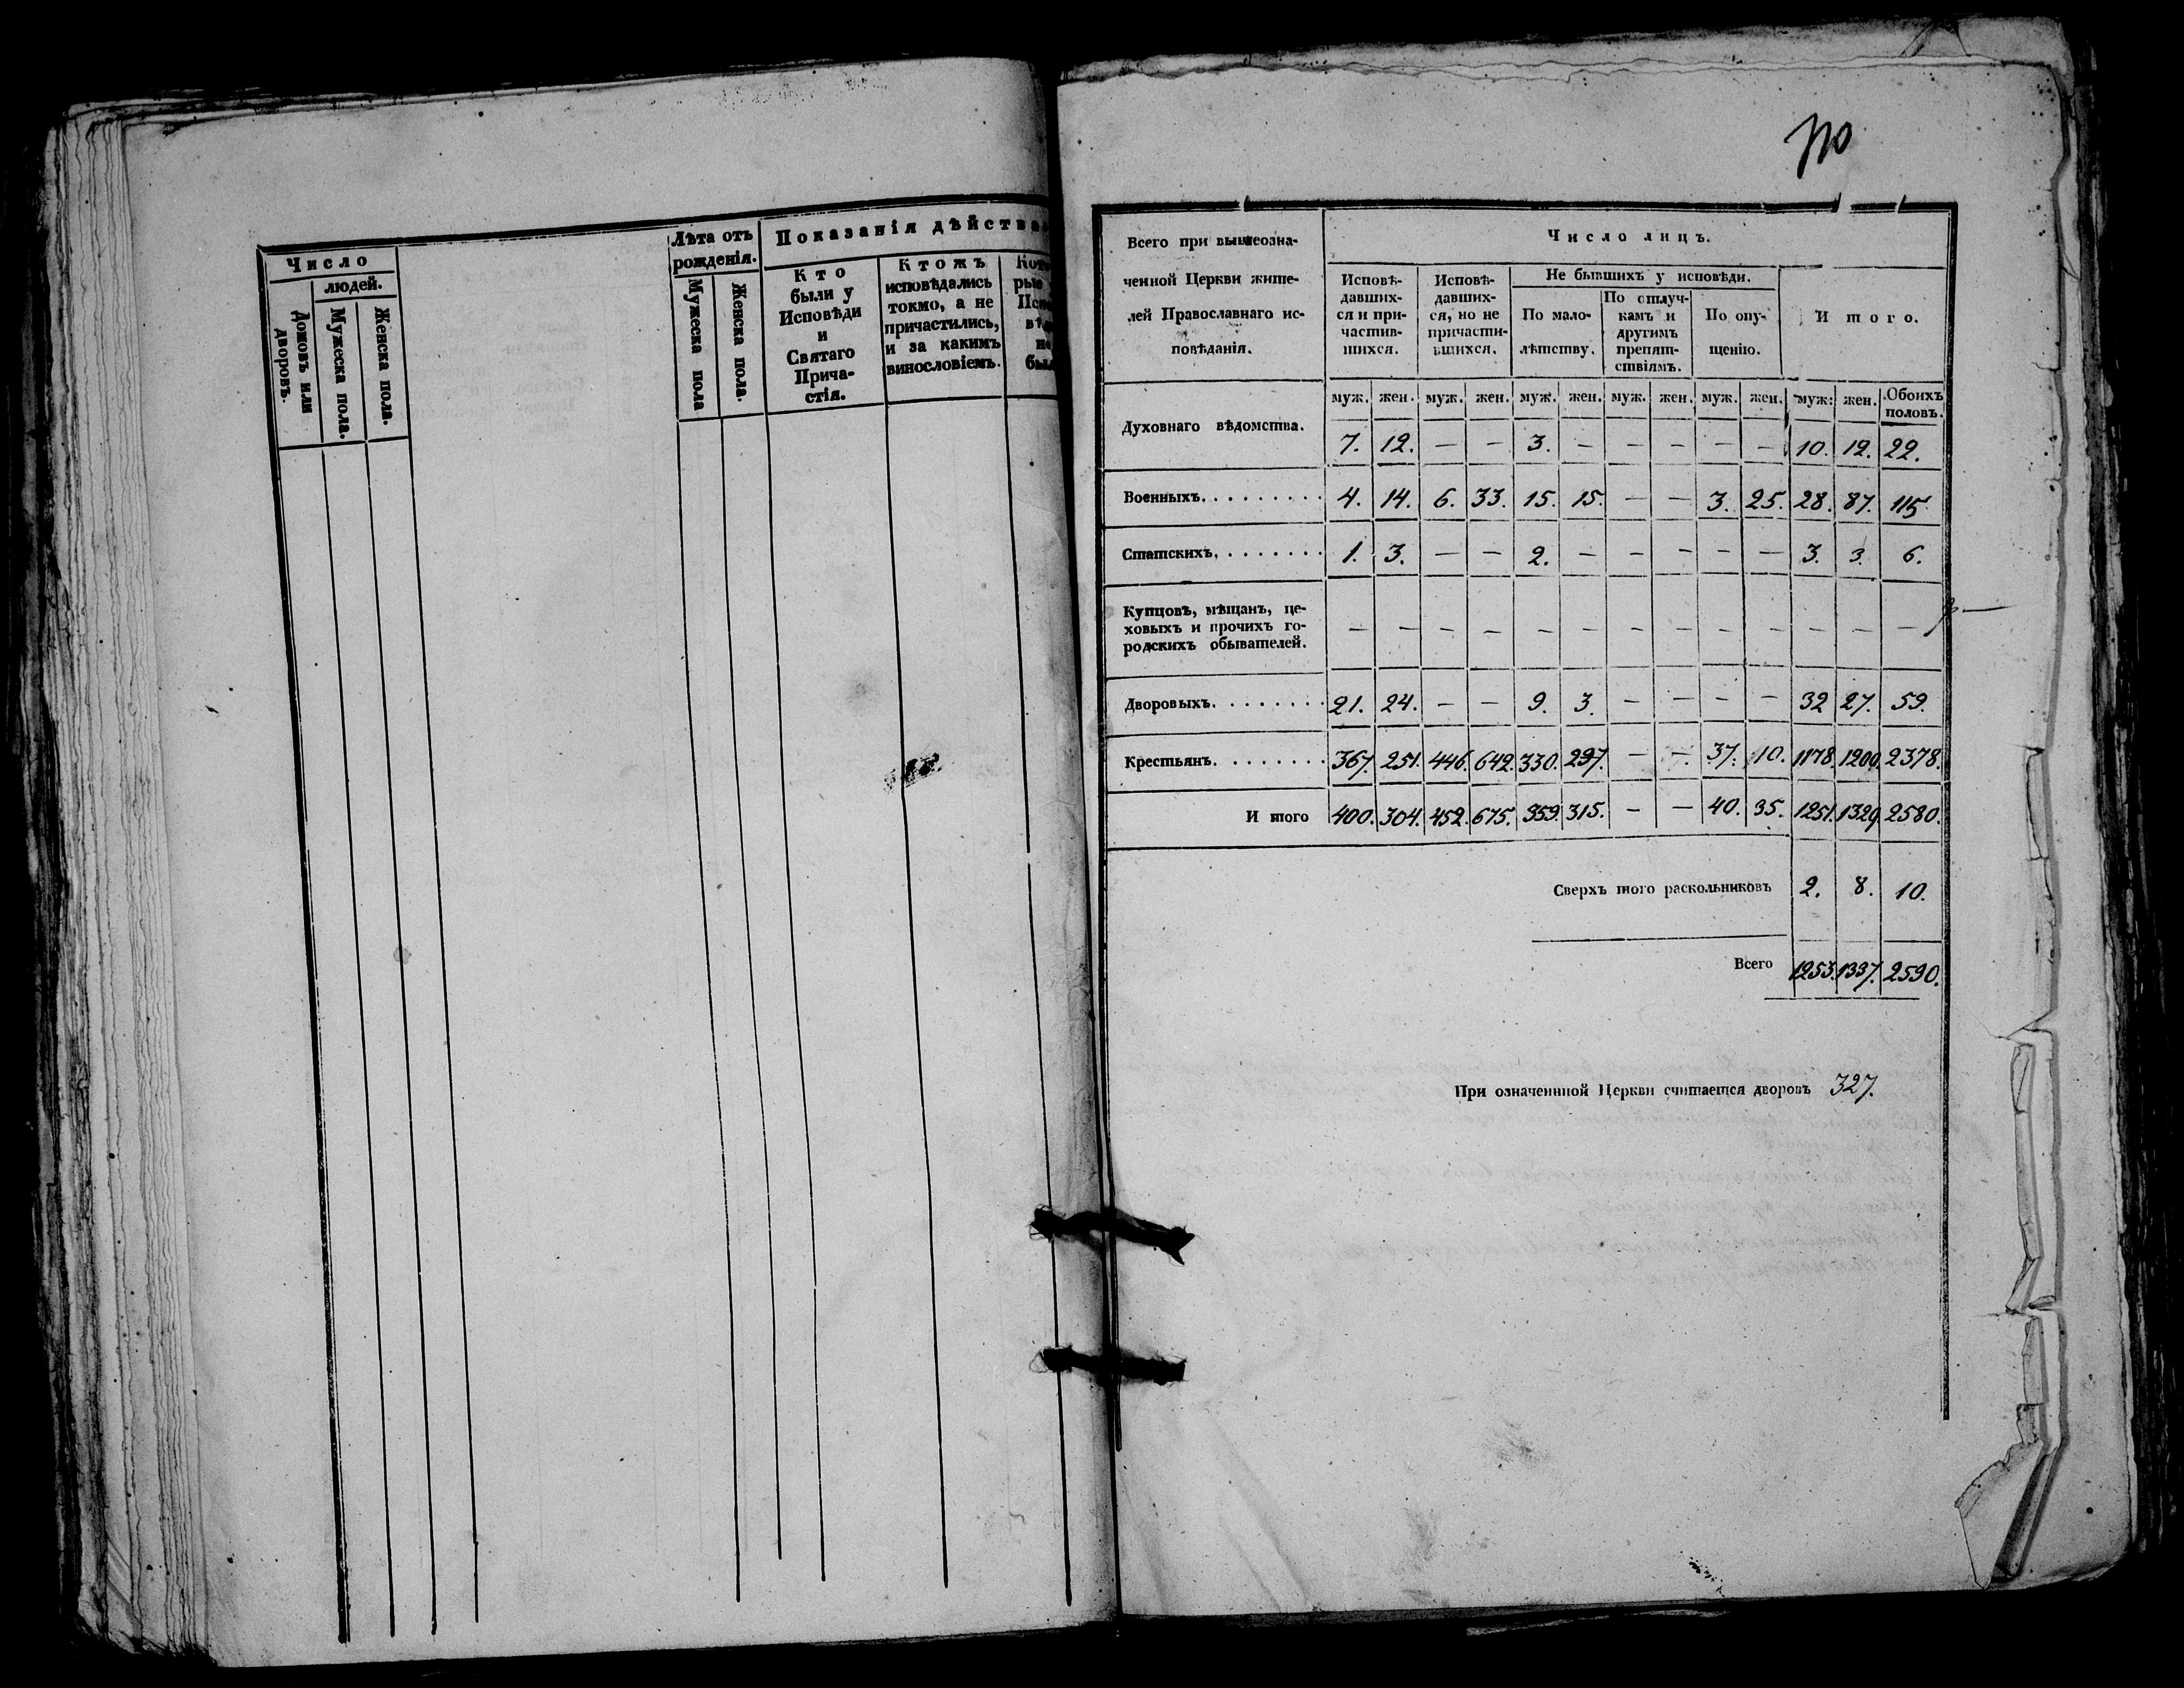 Число
людей.
Домовъ или дворовъ.
Мужеска пола.
Женска пола.
Лѣта отъ
рожденія.
Мужеска пола
Женска пола.
Показанія дѣйства
Кто
были у
Исповѣди
и
Святаго
Прича-
стія.
Ктожъ
исповѣдались
токмо, а не
причастились,
и за какимъ
винословіемъ.
Всего при вышеозна-
ченной Церкви жите-
лей Православнаго ис-
повѣданія.
Число лицъ.
Исповѣ-
давших-
ся и при-
частив-
шихся.
Исповѣ-
давших-
ся, но не
причасти-
вшихся.
Не бывшихъ у исповѣди.
По мало-
лѣтству.
По отлуч-
камъ и
другимъ
препят-
ствіямъ.
По опу-
щенію.
И того.
муж. жен. муж. жен. муж. жен. муж. жен. муж. жен. муж: жен. Обоихъ половъ.
Духовнаго вѣдомства. 7. 12. — — 3. — — — — — 10. 12. 22.
Военныхъ. . . . . . . . . 4. 14. 6. 33. 15. 15. — — 3. 25. 28. 87. 115
Статскихъ. . . . . . . . 1. 3. — — 2. — — — — — 3. 3. 6.
Купцовъ, мѣщанъ, це-
ховыхъ и прочихъ го-
родскихъ обывателей.
— — — — — — — — — — — — —
Дворовыхъ. . . . . . . . 21. 24. — — 9. 3. — — — — 32 27. 59.
Крестьянъ. . . . . . . . 367. 251. 446. 642. 330. 297. — — 37. 10. 1178. 1200. 2378.
И того 400. 304. 452. 675. 359. 315. — — 40. 35. 1251. 1329. 2580.
Сверхъ того раскольниковъ 2. 8. 10.
Всего 1253. 1337. 2590.
При означеннной Церкви считается дворовъ 327.